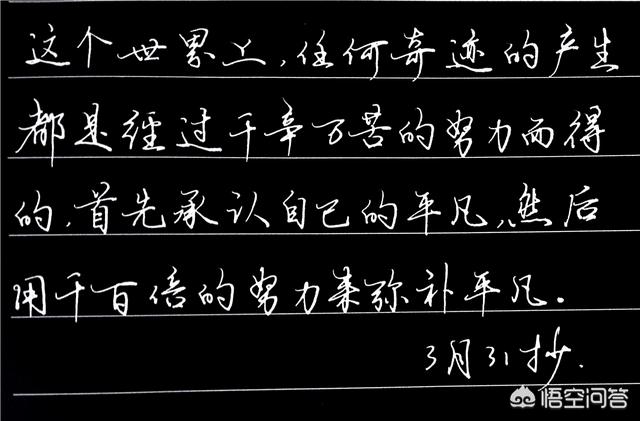 这个世界上,任何奇迹的产生
都是经过千辛万苦的努力而得
的,首先承认自己的平凡,然后
用千百倍的努力来弥补平凡.
3月31抄.
悟空问答